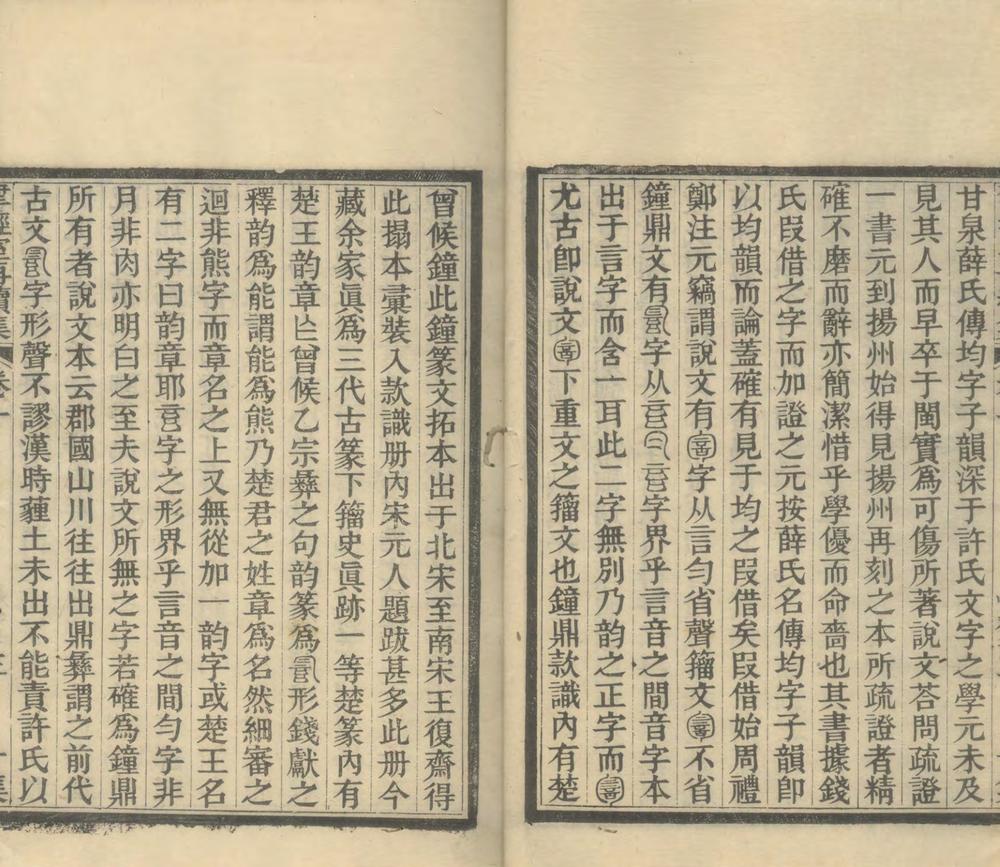 甘泉薛氏傳均字子韻深于許氏文字之學元未及
見其人而早卒于閩實爲可傷所著說文荅問疏證
一書元到揚州始得見揚州再刻之本所疏證者精
確不磨而辭亦簡潔惜乎學優而命嗇也其書據錢
氏叚借之字而加證之元按薛氏名傳均字子韻卽
以均韻而論蓋確有見于均之叚借矣叚借始周禮
鄭注元竊謂說文有字从言勻省聲籀文不省
鐘鼎文有字从字界乎言音之間音字本
出于言字而含一耳此二字無別乃韵之正字而
尤古卽說文下重文之籀文也鐘鼎款識內有楚
曾侯鐘此鐘篆文拓本出于北宋至南宋王復齋得
此搨本彙裝入款識册內宋元人題跋甚多此册今
藏余家眞爲三代古篆下籀史眞跡一等楚篆內有
楚王韵章乍曾侯乙宗彝之句韵篆爲形錢獻之
釋韵爲能謂能爲熊乃楚君之姓章爲名然細審之
迴非熊字而章名之上又無從加一韵字或楚王名
有二字曰韵章耶字之形界乎言音之間勻字非
月非肉亦明白之至夫說文所無之字若確爲鐘鼎
所有者說文本云郡國山川往往出鼎彝謂之前代
古文字形聲不謬漢時薶土未出不能責許氏以
揅經室再續集 卷一